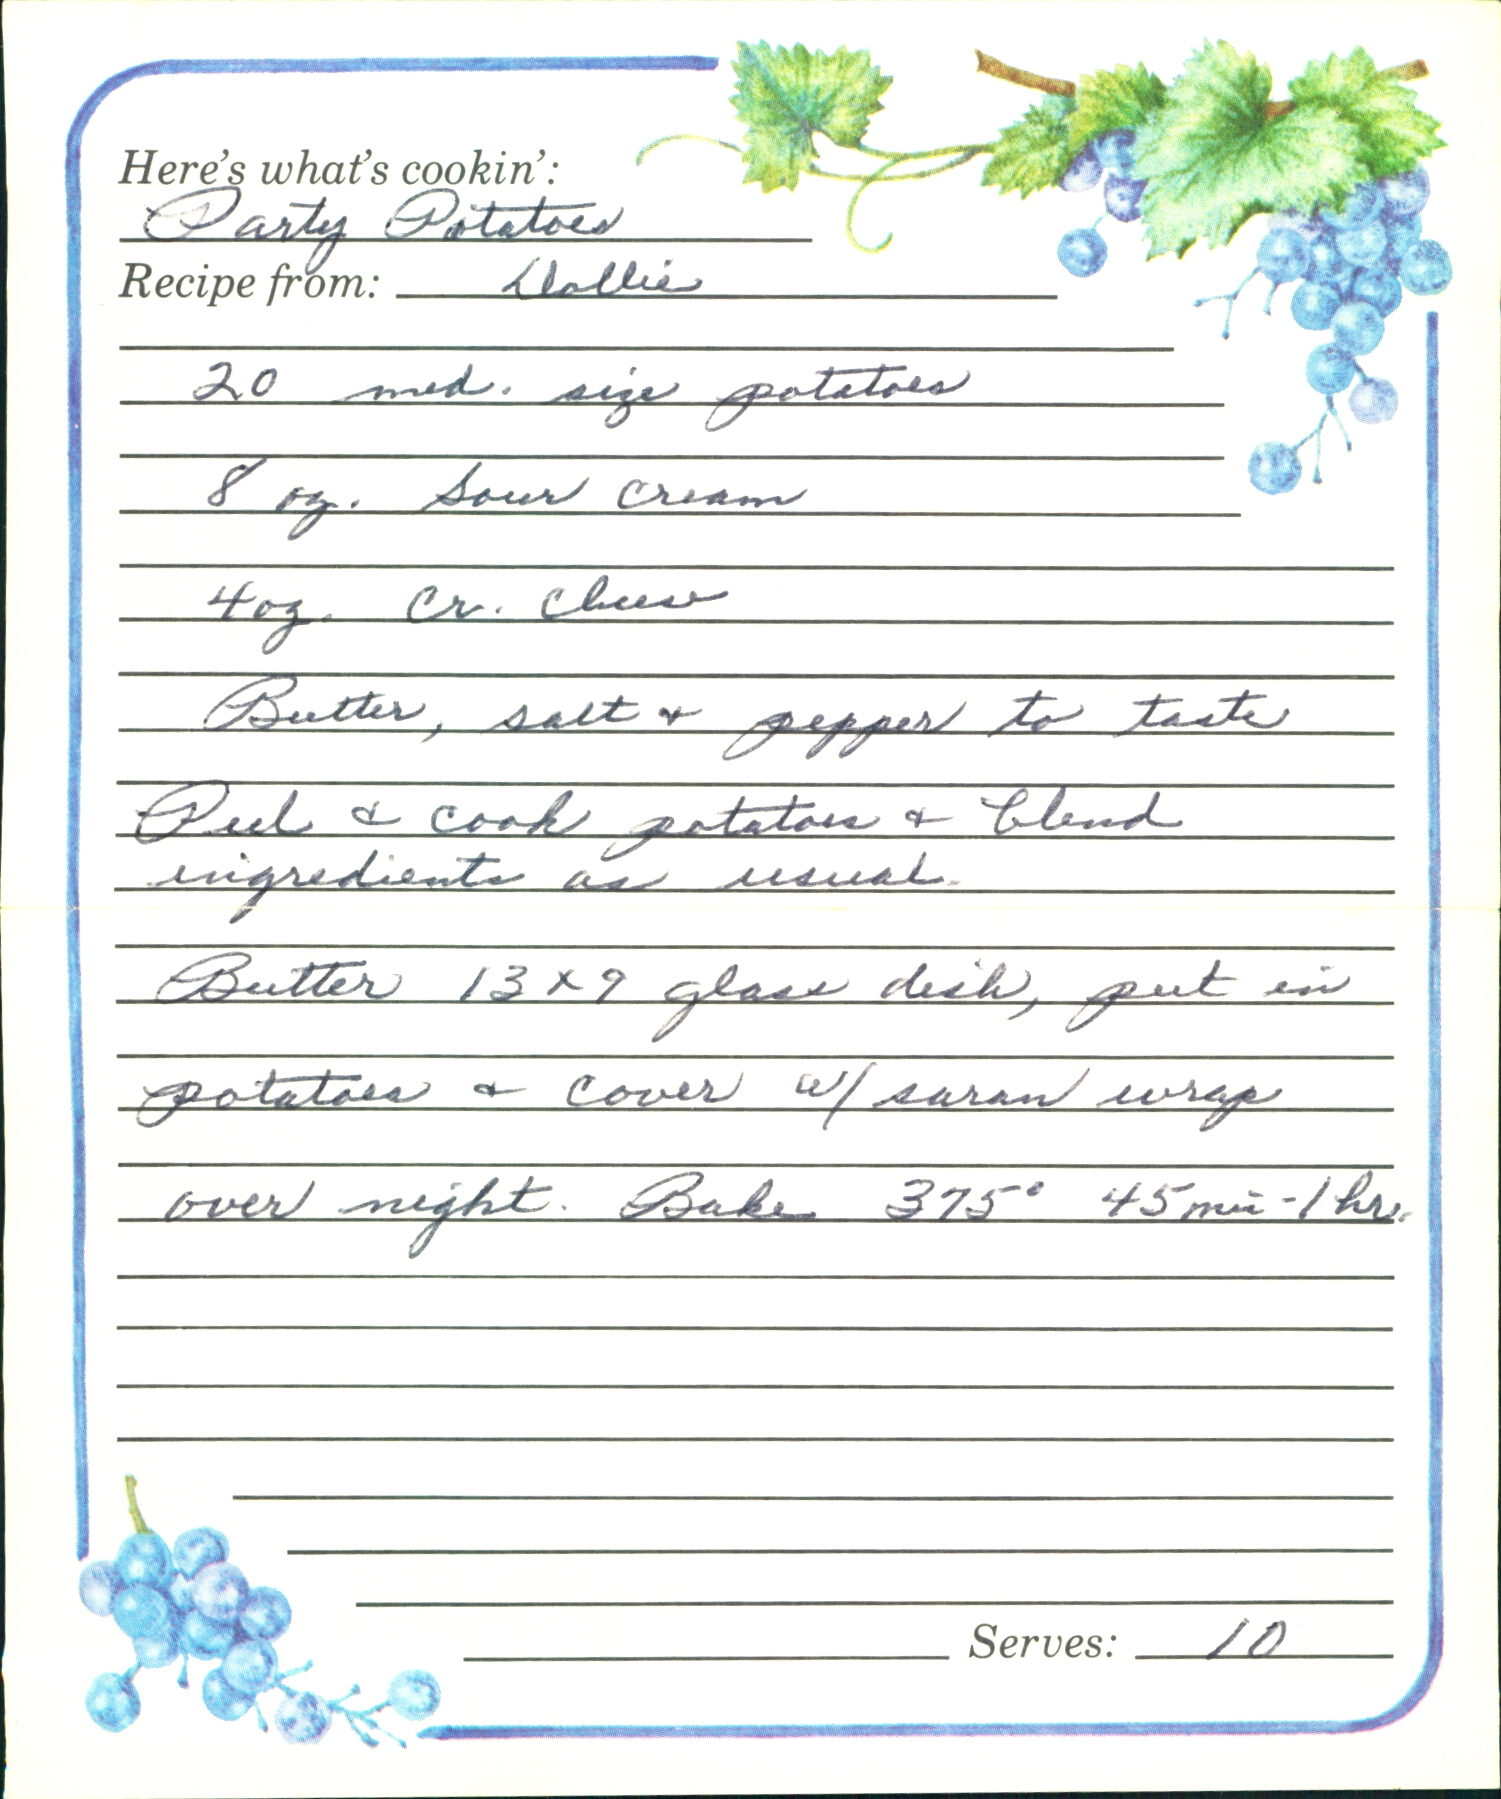 Here's what's cookin':
Party Potatoes
Recipe from: Dollie
20 med. size potatoes
8 oz. Sour Cream
4oz. Cr. Cheese
Butter, salt & pepper to taste
Peel & cook potatoes & blend
ingredients as usual.
Butter 13x9 glass dish, put in
potatoes & cover w/ saran wrap
over night. Bake 375° 45 min - 1 hr.
Serves: 10